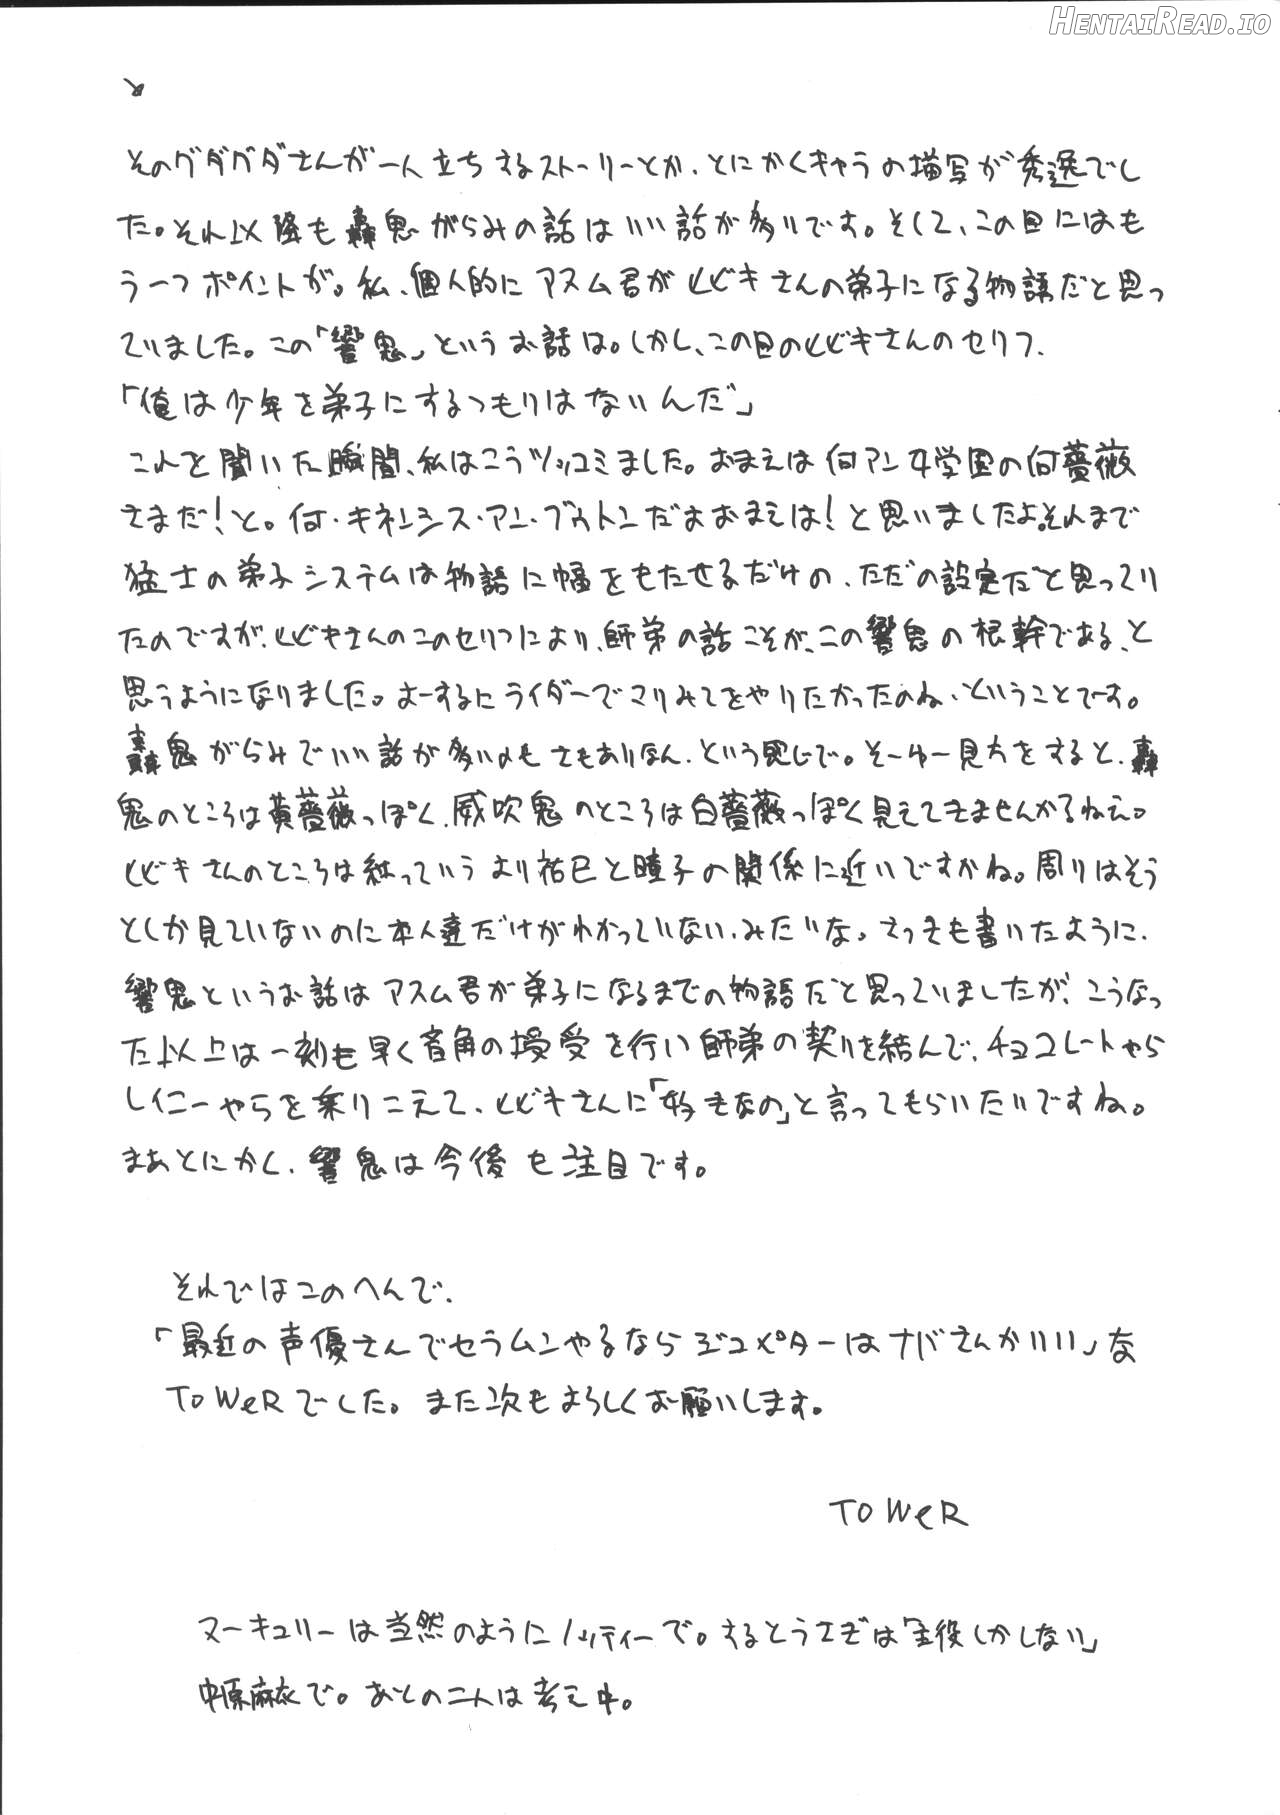 HENTAIREAD.IO
そのグダグダさんが一人立ちするストーリーとか、とにかくキャラの描写が秀逸でし
た。それ以降も轟鬼がらみの話はいい話が多いです。そして、この回にはも
う一つポイントが。私、個人的にアスム君がヒビキさんの弟子になる物語だと思っ
ていました。この「響鬼」というお話は。しかし、この回のヒビキさんのセリフ、
「俺は少年を弟子にするつもりはないんだ」
これを聞いた瞬間、私はこうツッコミました。おまえは何アン女学園の何薔薇
さまだ!と。何・キネンシス・アン・ブゥトンだよおまえは!と思いましたよ。それまで
猛士の弟子システムは物語に幅をもたせるだけの、ただの設定だと思ってい
たのですが、ヒビキさんのこのセリフにより、師弟の話こそが、この響鬼の根幹である、と
思うようになりました。よーするにライダーでマリみてをやりたかったのね、ということです。
轟鬼がらみでいい話が多いのもさもありなん、という感じで。そーゆー見方をすると、轟
鬼のところは黄薔薇っぽく、威吹鬼のところは白薔薇っぽく見えてきませんかるねえ。
ヒビキさんのところは紅っていうより祐巳と瞳子の関係に近いですかね。周りはそう
としか見ていないのに本人達だけがわかっていない、みたいな。さっきも書いたように、
響鬼というお話はアスム君が弟子になるまでの物語だと思っていましたが、こうなっ
た以上は一刻も早く音角の授受を行い師弟の契りを結んで、チョコレートやら
レイニーやらを乗りこえて、ヒビキさんに「好きなの」と言ってもらいたいですね。
まあとにかく、響鬼は今後も注目です。
それではこのへんで、
「最近の声優さんでセラムンやるならジュピターはナバさんがいい」な
TOWeRでした。また次もよろしくお願いします。
TOWeR
マーキュリーは当然のようにノッティーで。するとうさぎは「主役しかしない」
中原麻衣で。あとの二人は考え中。